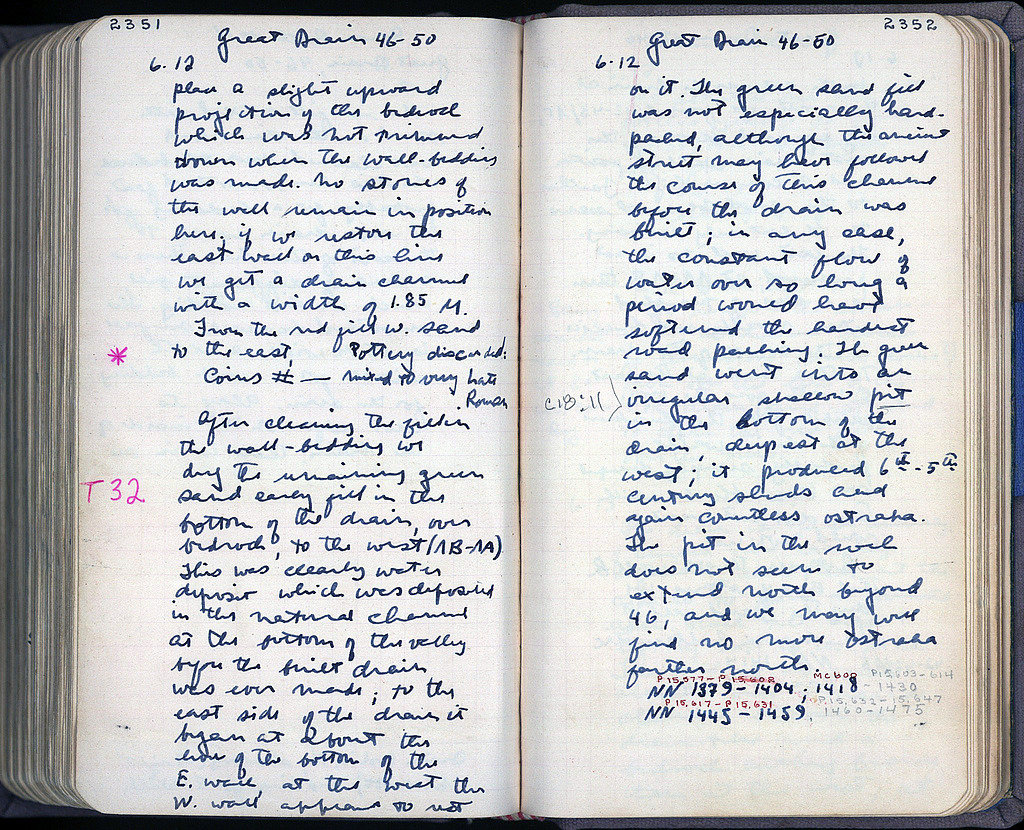 2351
Great Drain 46-50
6.12
place a slight upward
projection of the bedrock
which was not trimmed
down when the wall-bedding
was made. No stones of
the wall remain in position
here; if we restore the
east wall on this line
we get a drain channel
with a width of 1.85 M.
From the red fill w. sand
* to the east, Pottery discarded:
Coins # — mixed to very late
Roman
After cleaning the fill in
the wall-bedding we
dug the remaining green
T 32
sand early fill in the
bottom of the drain, over
bedrock, to the west (ΛB-ΛA)
This was clearly water
deposit which was deposited
in the natural channel
at the bottom of the valley
before the built drain
was ever made; to the
east side of the drain it
began at about the
line of the bottom of the
E. wall, at the west the
W. wall appears to rest
2352
Great Drain 46-50
6.12
on it. The green sand fill
was not especially hard-
packed, although the ancient
street may have followed
the course of this channel
before the drain was
built; in any case,
the constant flow of
water over so long a
period would have
softened the hardest
road packing. The green
sand went into an
C18:11) irregular shallow pit
in the bottom of the
drain, deepest at the
west; it produced 6th-5th
century sherds and
again countless ostraka.
The pit in the rock
does not seem to
extend north beyond
46, and we may well
find no more ostraka
farther north.
P 15,577-P 15,602 MC 600 P15,603-614
NN 1379-1404; 1418-1430
P 15,617-P 15,631 P15,632-15,647
NN 1445-1459, 1460-1475